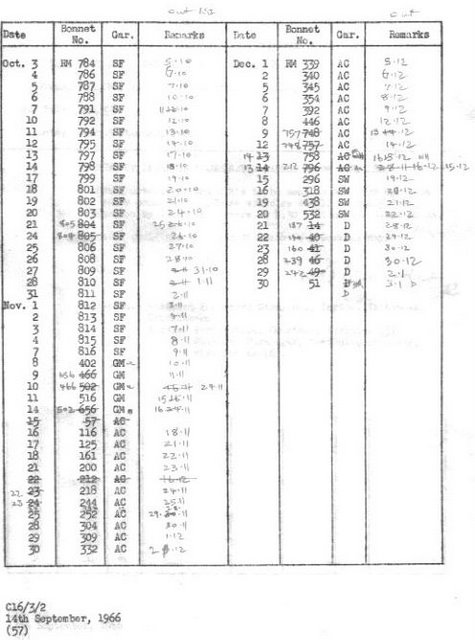 out
Date Bonnet No. Gar. Remarks Date Bonnet No. Gar. Remarks
Oct. 3 RM 784 SF 5.10 Dec. 1 RM 339 AC 5.12
4 786 SF 6.10 2 340 AC 6.12
5 787 SF 7.10 5 345 AC 7.12
6 788 SF 10.10 6 354 AC 8.12
7 791 SF 10 7 392 AC 9.12
10 792 SF 12.10 8 446 AC 12.12
11 794 SF 13.10 9 757 748 AC 12
12 795 SF 14.10 12 748 757 AC 14.12
13 797 SF 17.10 14 13 758 AC 12
14 798 SF 18.10 13 14 212 796 AC 15.12
17 799 SF 19.10 15 296 SW 19.12
18 801 SF 20.10 16 318 SW 20.12
19 802 SF 21.10 19 438 SW 21.12
20 803 SF 24.10 20 532 SW 22.12
21 805 804 SF 25 10 21 187 14 D 28.12
24 804 805 SF 26.10 22 40 D 29.12
25 806 SF 27.10 23 160 41 D 30.12
26 808 SF 28.10 28 239 46 D 30.12
27 809 SF 31.10 29 242 49 D 2.1
28 810 SF 1.11 30 51 D 3.1 D
31 811 SF 2.11 D
Nov. 1 812 SF 3.11
2 813 SF
3 814 SF 7.11
4 815 SF 8.11
7 816 SF 9.11
8 402 GM 10.11
9 656 466 GM 11.11
10 466 502 GM 24.11
11 516 GM 15 11
14 502 656 GM 16 11
15 57 AC
16 116 AC 18.11
17 125 AC 21.11
18 161 AC 22.11
21 200 AC 23.11
22 212 AC 16.12
22 23 218 AC 24.11
23 24 244 AC 25.11
25 252 AC 29 11
28 304 AC 30.11
29 309 AC 1.12
30 332 AC 2 12
C16/3/2
14th September, 1966
(57)